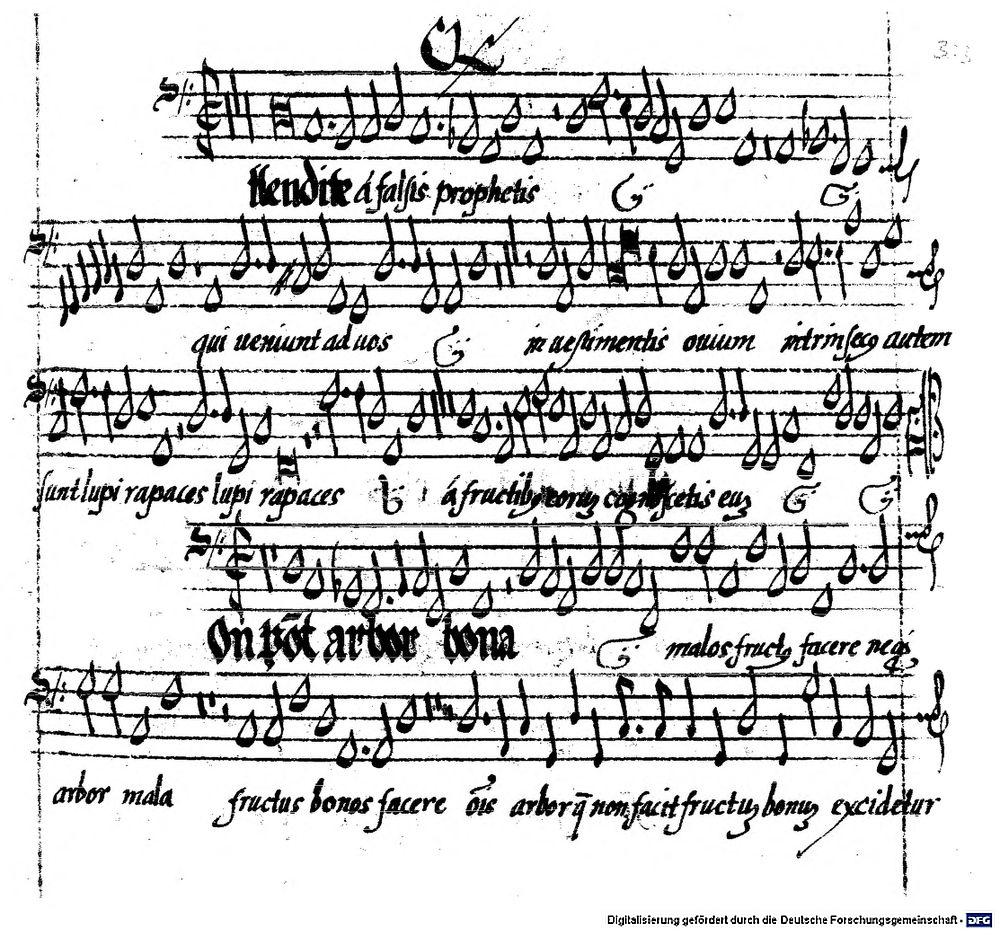 Attendite á falsis prophetis
qui veniunt ad vos in vestimentis ovium intrinsecꝰ autem
sunt lupi rapaces lupi rapaces á fructibꝫ eoruꝫ cognoscetis euꝫ
Oñ põt arbor bona malos fructꝰ facere neqꝫ
arbor mala fructus bonos facere oı̃s arbor q̃ non facit fructuꝫ bonuꝫ excidetur
Digitalisierung gefördert durch die Deutsche Forschungsgemeinschaft - DFG